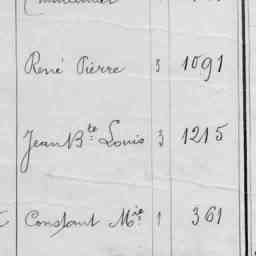 René Pierre 3 1091
Jean Bte Louis 3 1215
Constant Mie 1 361